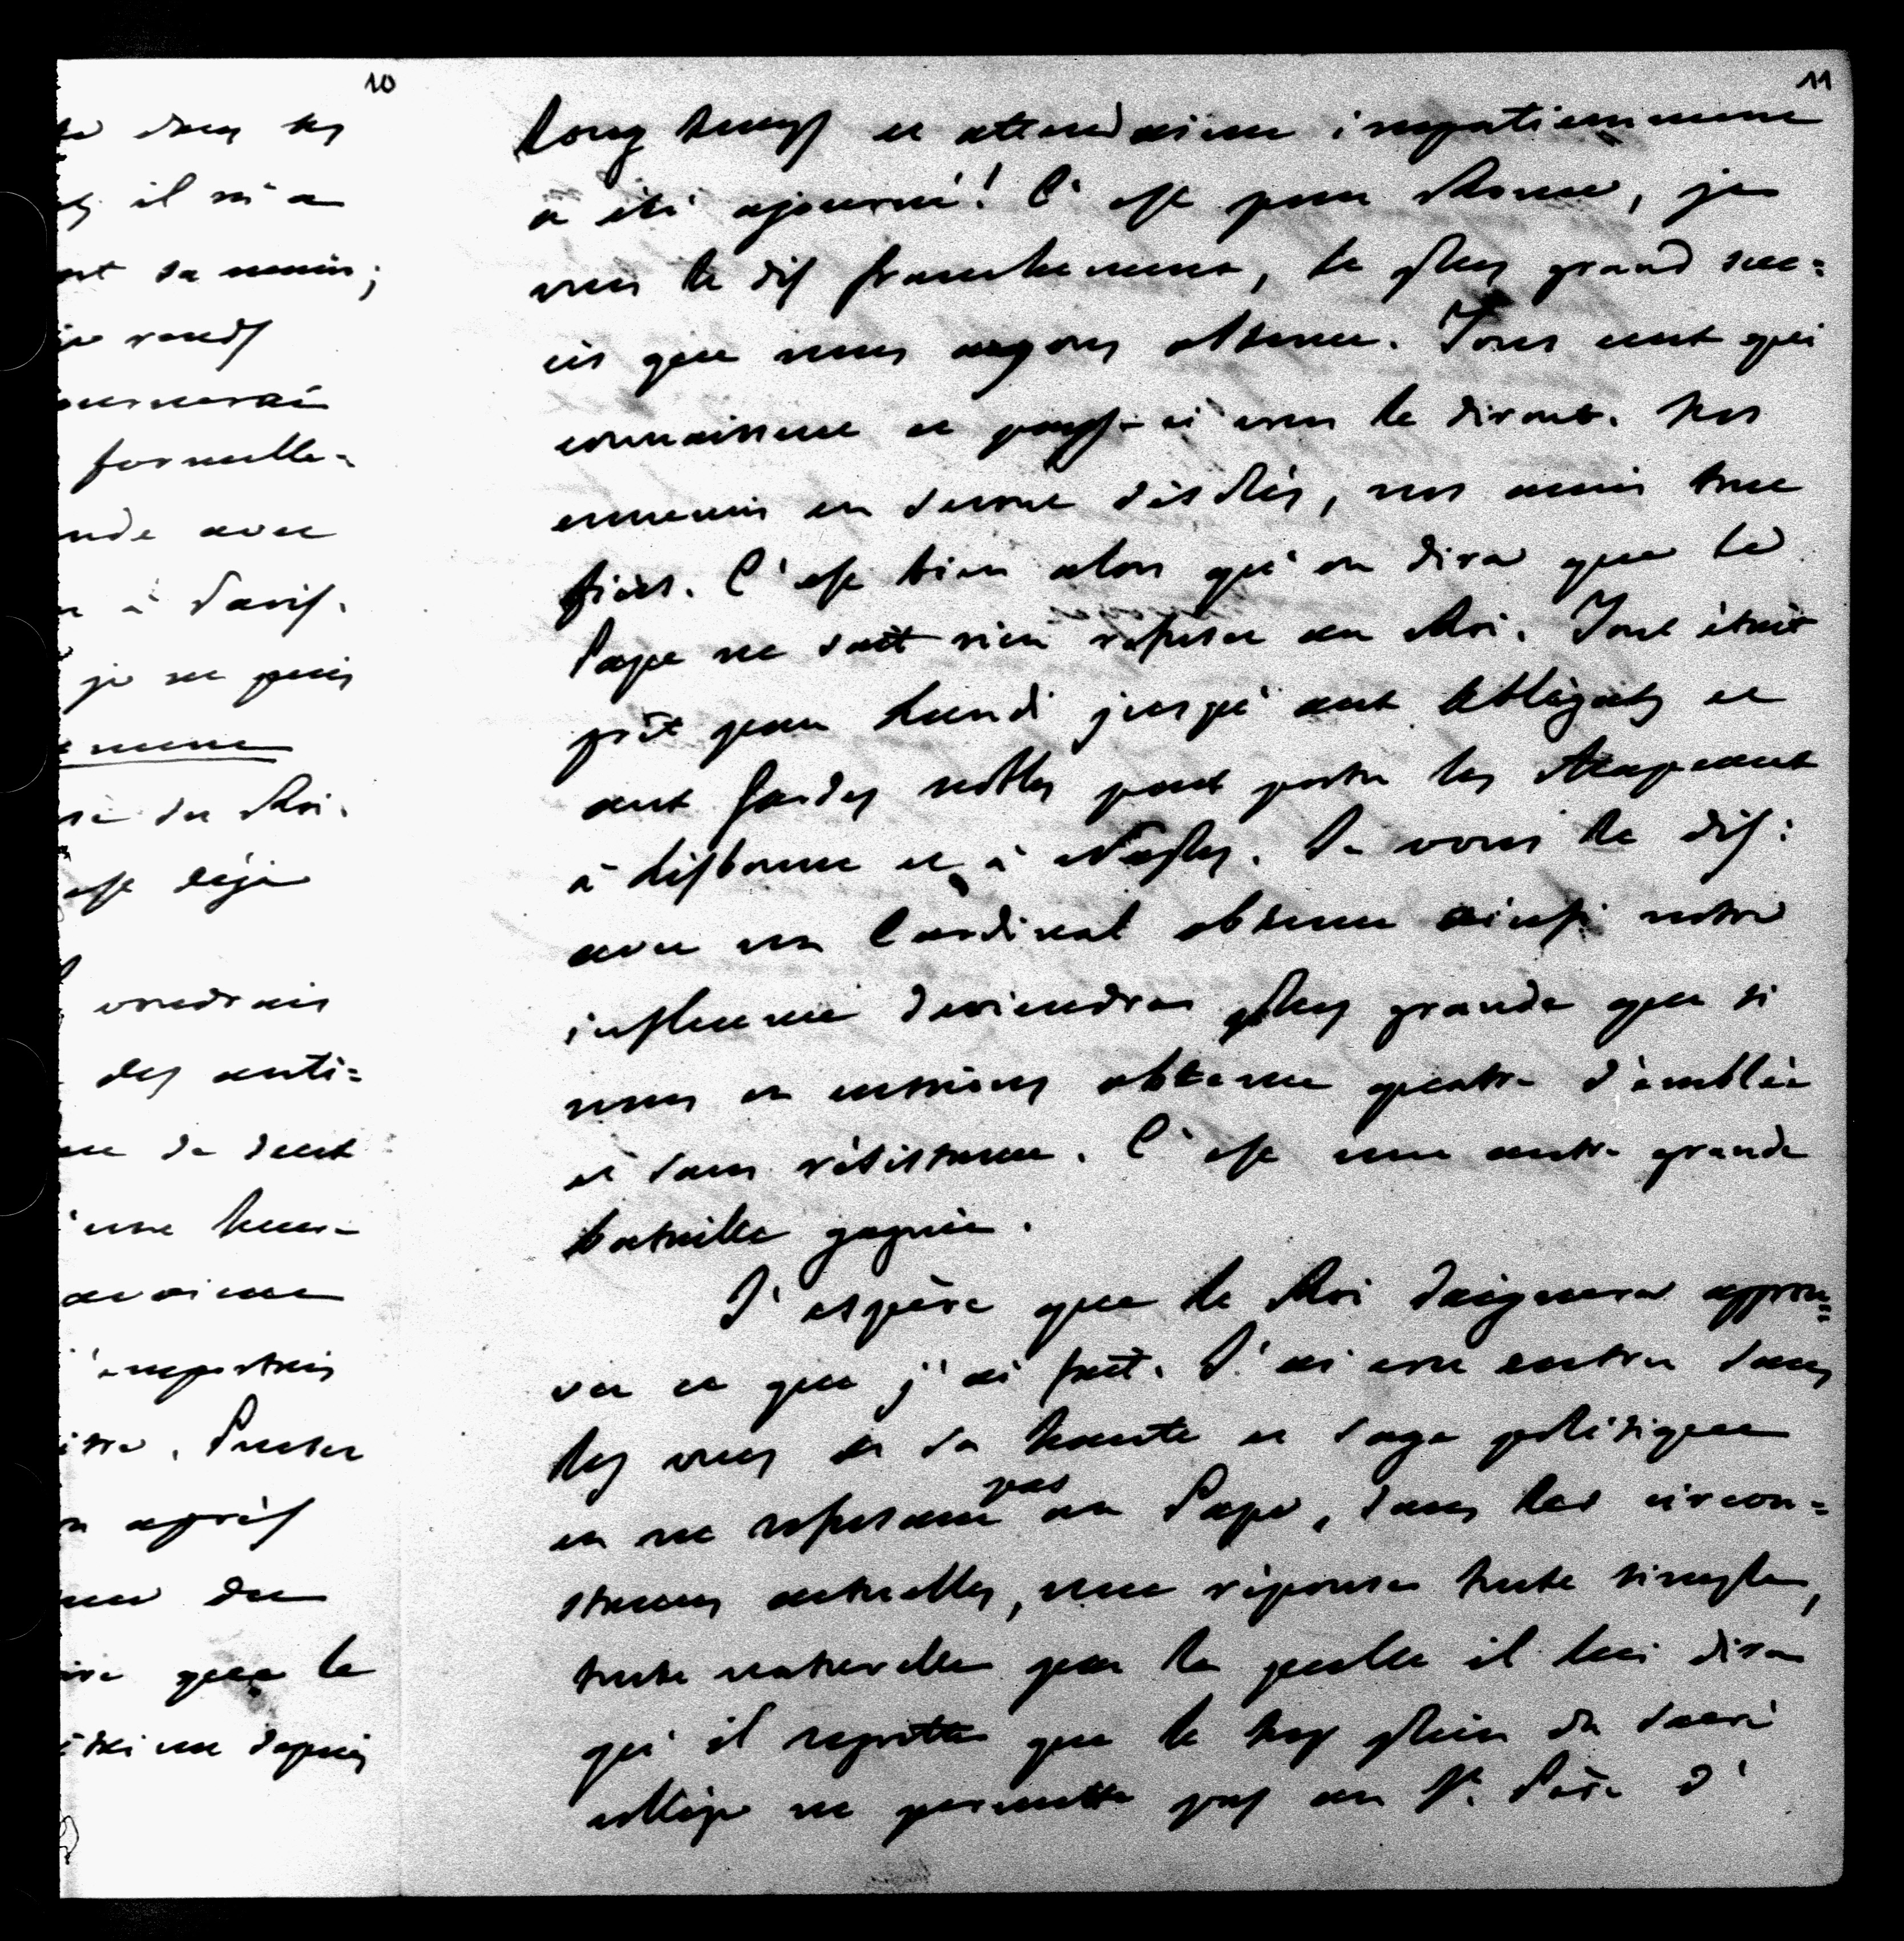 10
il m'a
sa main;
je rends
formelle-
avec
à Paris.
je ne puis
du Roi.
est déjà
voudrais
des anti=
de deux
une heure
avaient
importais
après
du
que le
depuis
11
long temps et attendaient impatiemment
a été ajourné! C'est pour Rome, je
vous le dis franchement, le plus grand suc=
cès que nous ayons obtenu. Tous ceux qui
connaissent ce pays-ci vous le diront. Nos
ennemis en seront désolés, nos amis tout
fiers. C'est bien alors qu'on dira que le
Pape ne sait rien refuser au Roi. Tout était
prêt pour Lundi jusqu'aux Ablégats et
aux Gardes nobles pour porter les Chapeaux
à Lisbonne et à Naples. Je vous le dis:
avec un Cardinal obtenu ainsi notre
influence deviendra plus grande que si
nous en eussions obtenu quatre d'emblée
et sans résistance. C'est une autre grande
bataille gagnée.
J'espère que le Roi daignera approu=
ver ce que j'ai fait. J'ai cru entrer dans
les vues de sa haute et sage politique
en ne refusant pas au Pape, dans les circon=
stances actuelles, une réponse toute simple,
toute naturelle par la quelle il lui dira
qu'il regrette que le trop plein du sacré
collège ne permette pas au St. Père d'